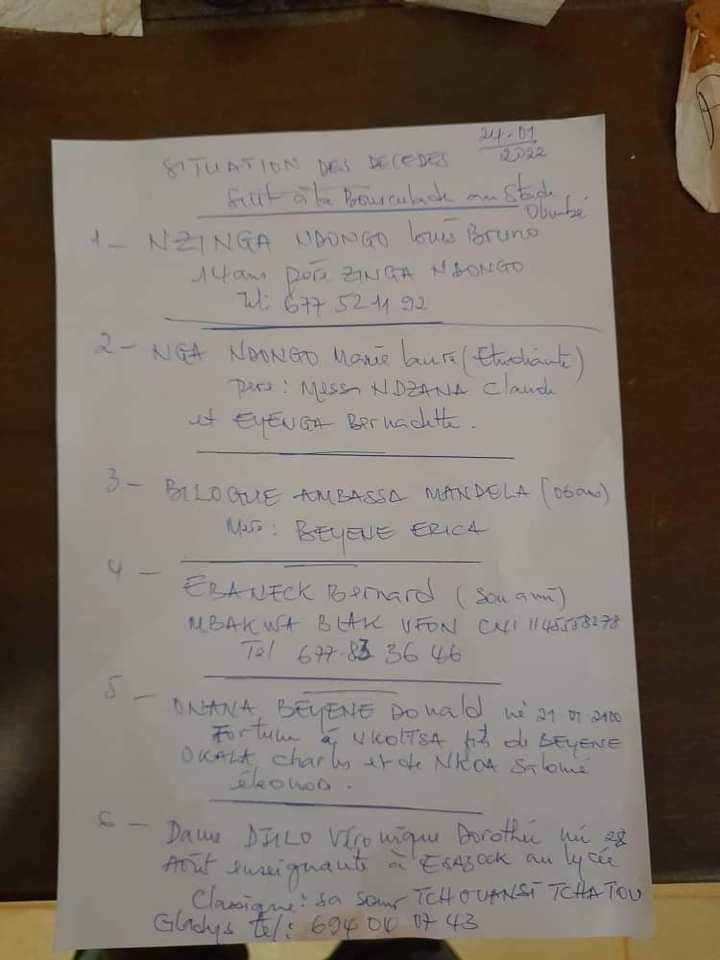 24-01
2022
SITUATION DES DECEDES
suite à la Bousculade au Stade
Olembé
1- NZINGA NDONGO Louis Bruno
14 ans père ZINGA NDONGO
Tel: 677 52 11 92
2- NGA NDONGO Marie Laure (Etudiante)
père: Messi NDZANA Claude
et EYENGA Bernadette.
3- BILOGUE AMBASSA MANDELA (06 ans)
Mère: BEYENE ERICA
4-
EBANECK Bernard (son ami)
MBAKWA BLAK VFON CNI 1145558278
Tel 677-83 36 46
5-
ONANA BEYENE Donald né 21 01
à NKOLTSA fils de BEYENE
OKALA Charles et de NKOA Salomé
6- Dame DJILO Véronique Dorothée né 28
Août enseignante à au lycée
Classique: sa sœur TCHOUANSI TCHATOU
Gladys tel: 694 00 07 43